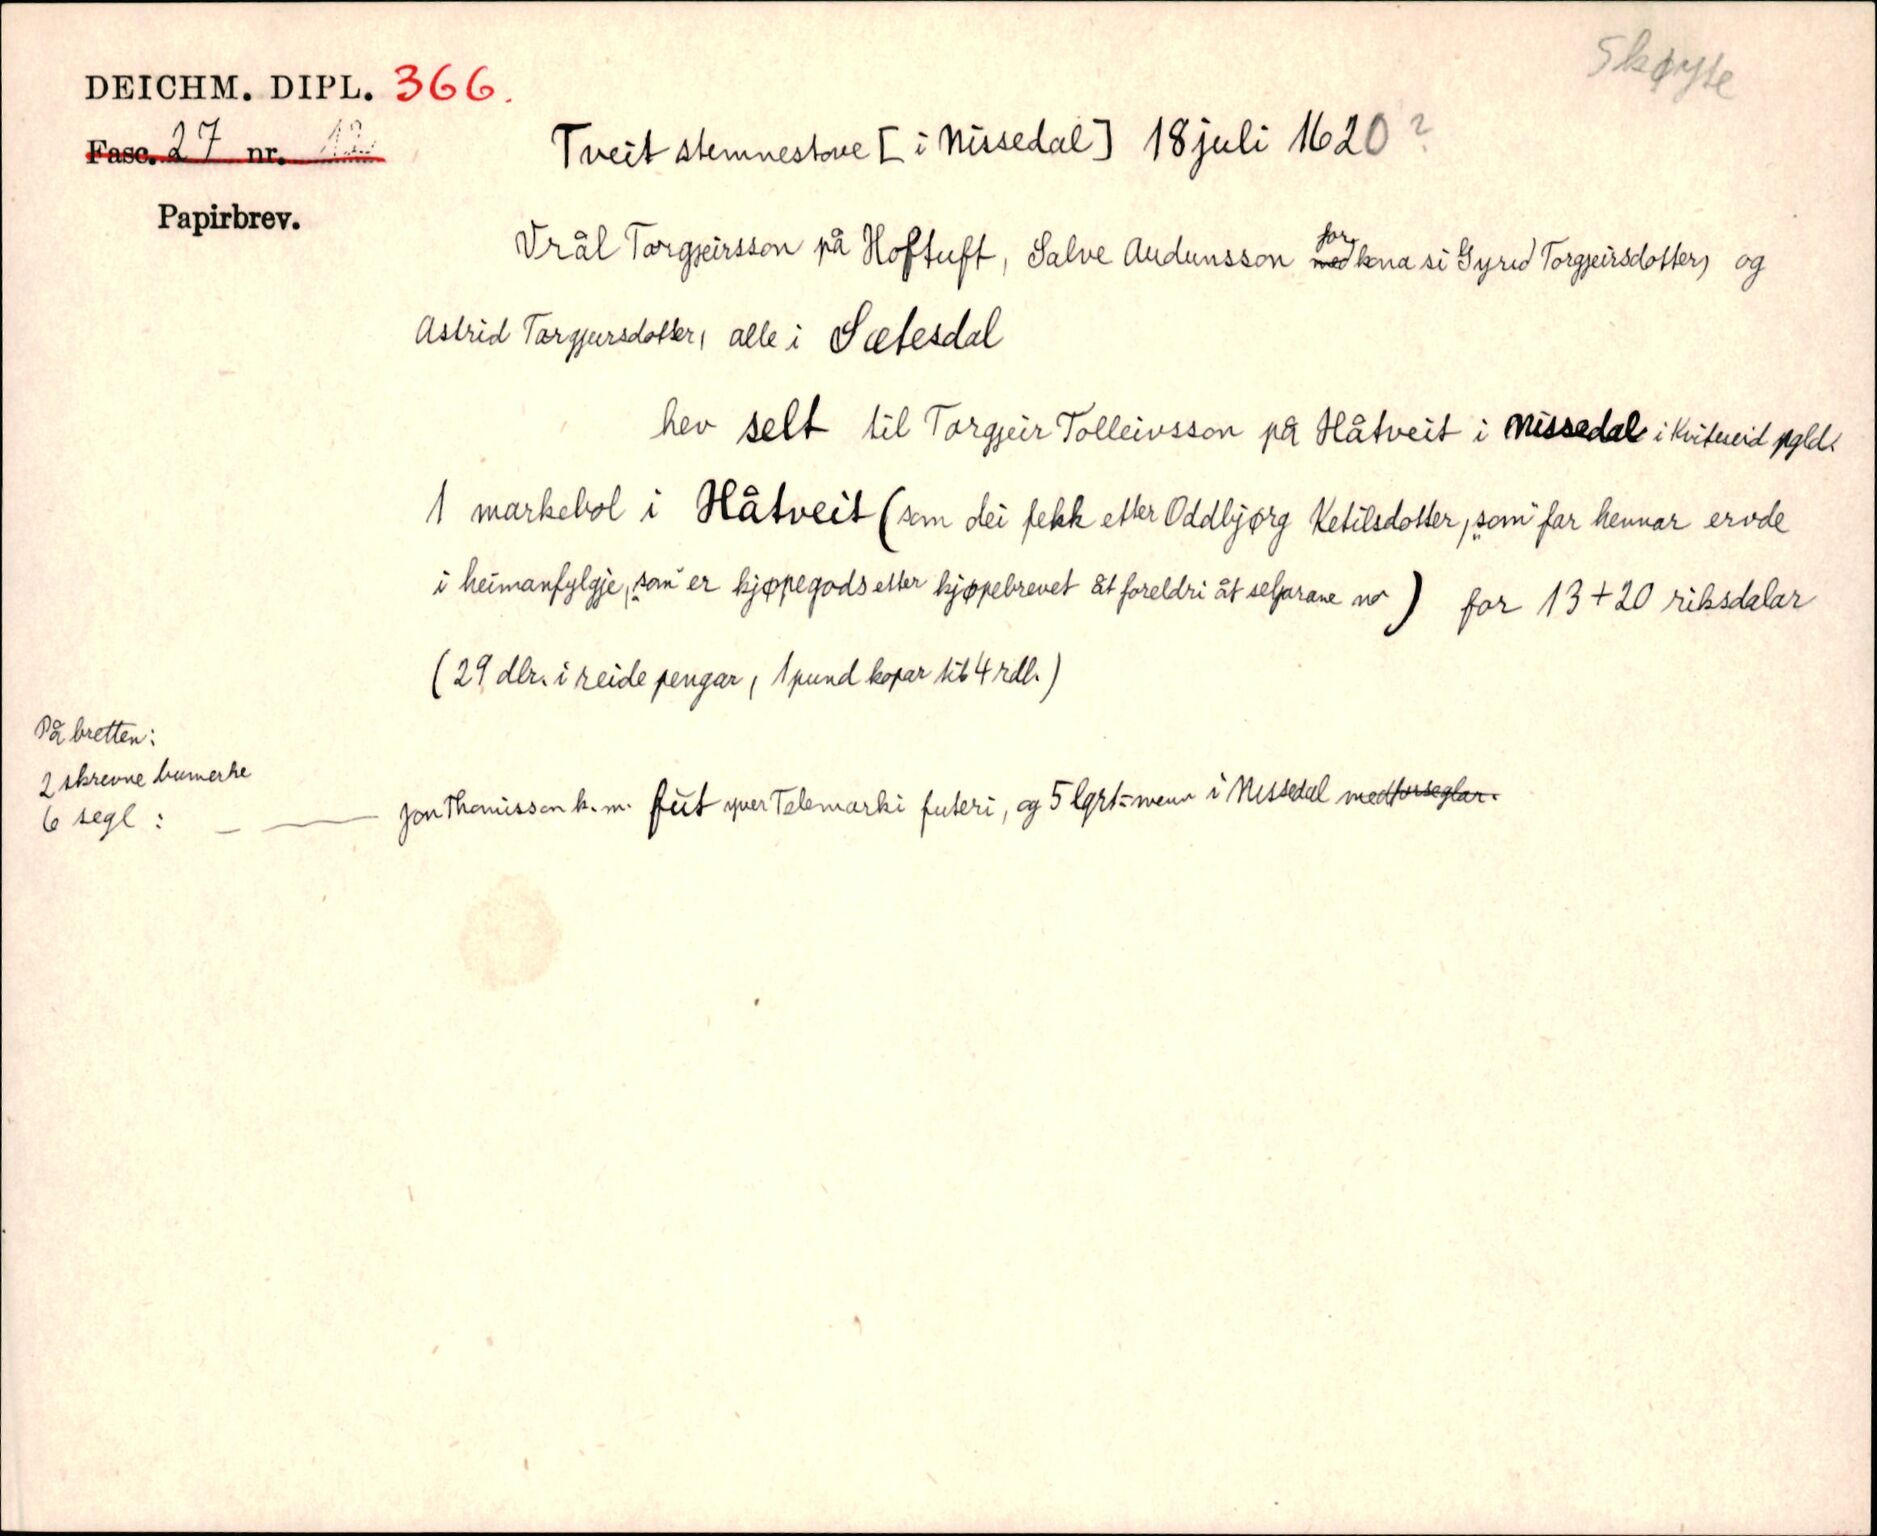 Skøyte
DEICHM. DIPL. 366.
Fasc. 27 nr. 12
Papirbrev.
Tveit stemnestove [i Nissedal] 18 juli 1620?
Vrål Torgjeirsson på Hoftuft, Salve Audunsson med for kona si Gyrid Torgjeirsdotter, og
Astrid Torgjeirsdotter, alle i Sætesdal
hev selt til Torgjeir Tolleivsson på Håtveit i Nissedal i Kviteseid pgld.
1 markebol i Håtveit (som dei fekk etter Oddbjørg Ketilsdotter, "som" far hennar ervde
i heimanfylgje, "som" er kjøpegods etter kjøpebrevet åt foreldri åt seljarane no) for 13 + 20 riksdalar
(29 dlr. i reide pengar, 1 pund kopar til 4 rdl.)
På bretten:
2 skrevne bumerke
6 segl: Jon Thomisson k. m. fut yver Telemarki futeri, og 5 lgrt-menn i Nissedal medforseglar.